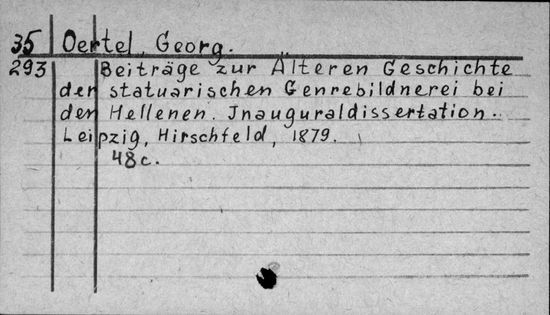 35 Oertel, Georg.
293 Beiträge zur Älteren Geschichte
der statuarischen Genrebildnerei bei
den Hellenen. Inauguraldissertation.
Leipzig, Hirschfeld, 1879.
48c.